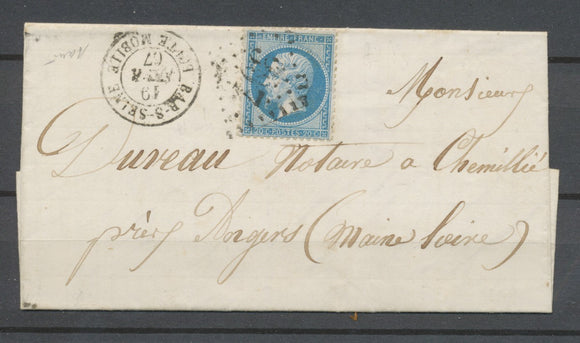 BAR-S-SEINE BTE MOBILE
19
67
EMPIRE FRANC
20 C POSTES 20 C
Monsieur
Dureau Notaire a Chemillié
près Angers (Maine Loire)